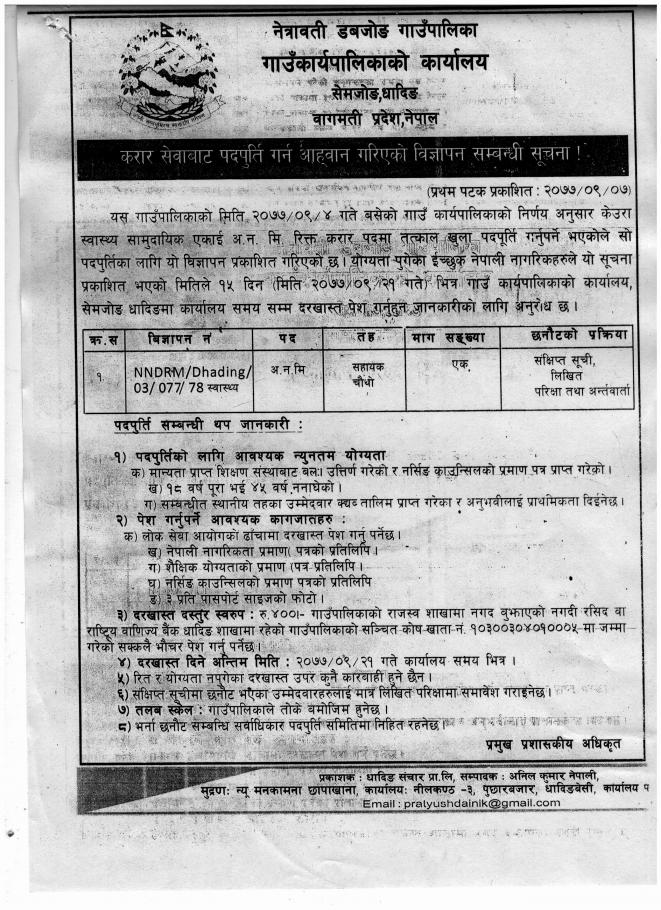 नेत्रावती डबजोङ गाउँपालिका
गाउँकार्यपालिकाको कार्यालय
सेमजोङ,धादिङ
वागमती प्रदेश,नेपाल
करार सेवाबाट पदपुर्ति गर्न आहवान गरिएको विज्ञापन सम्बन्धी सूचना !
(प्रथम पटक प्रकाशित : २०७७/०९/०७)
यस गाउँपालिकाको मिति २०७७/०९/४ गते बसेको गाउँ कार्यपालिकाको निर्णय अनुसार केउरा
स्वास्थ्य सामुदायिक एकाई अ.न. मि. रिक्त करार पदमा तत्काल खुला पदपूर्ति गर्नुपर्ने भएकोले सो
पदपुर्तिका लागि यो विज्ञापन प्रकाशित गरिएको छ। योग्यता पुगेका ईच्छुक नेपाली नागरिकहरुले यो सूचना
प्रकाशित भएको मितिले १५ दिन (मिति २०७७/०९/२१ गते) भित्र गाउँ कार्यपालिकाको कार्यालय,
सेमजोङ धादिङमा कार्यालय समय सम्म दरखास्त पेश गर्नुहुन जानकारीको लागि अनुरोध छ।
क्र.स बिज्ञापन नं पद तह माग सङ्ख्या छनौटको प्रक्रिया
१. NNDRM/Dhading/ अ.न.मि सहायक एक संक्षिप्त सूची,
03/ 077/ 78 स्वास्थ्य चौथो लिखित
परिक्षा तथा अर्न्तवार्ता
पदपुर्ति सम्बन्धी थप जानकारी :
१) पदपुर्तिको लागि आवश्यक न्युनतम योग्यता
क) मान्यता प्राप्त शिक्षण संस्थाबाट उत्तिर्ण गरेको र नर्सिङ काउन्सिलको प्रमाण पत्र प्राप्त गरेको।
ख) १८ वर्ष पूरा भई ४५ वर्ष ननाघेको।
ग) सम्बन्धीत स्थानीय तहका उम्मेदवार तालिम प्राप्त गरेका र अनुभवीलाई प्राथमिकता दिईनेछ।
२) पेश गर्नुपर्ने आवश्यक कागजातहरु :
क) लोक सेवा आयोगको ढाँचामा दरखास्त पेश गर्नु पर्नेछ।
ख) नेपाली नागरिकता प्रमाण( पत्रको प्रतिलिपि।
ग) शैक्षिक योग्यताको प्रमाण (पत्र प्रतिलिपि।
घ) नर्सिङ काउन्सिलको प्रमाण पत्रको प्रतिलिपि
ङ) ३ प्रति पासपोर्ट साइजको फोटो।
३) दरखास्त दस्तुर स्वरुप : रु.४००।- गाउँपालिकाको राजस्व शाखामा नगद बुझाएको नगदी रसिद वा
राष्ट्रिय वाणिज्य बैंक धादिङ शाखामा रहेको गाउँपालिकाको सञ्चित कोष खाता नं. १०३००३०४०१०००५ मा जम्मा
गरेको सक्कलै भौचर पेश गर्नु पर्नेछ।
४) दरखास्त दिने अन्तिम मिति : २०७७/०९/२१ गते कार्यालय समय भित्र ।
५) रित र योग्यता नपुगेका दरखास्त उपर कुनै कारवाही हुने छैन।
६) संक्षिप्त सूचीमा छनौट भएका उम्मेदवारहरुलाई मात्र लिखित परिक्षामा समावेश गराइनेछ।
७) तलब स्केल : गाउँपालिकाले तोके बमोजिम हुनेछ ।
८) भर्ना छनौट सम्बन्धि सर्वाधिकार पदपुर्ति समितिमा निहित रहनेछ।
प्रमुख प्रशासकीय अधिकृत
प्रकाशक : धादिङ संचार प्रा.लि, सम्पादक : अनिल कुमार नेपाली,
मुद्रणः न्यू मनकामना छापाखाना, कार्यालय: नीलकण्ठ -३, पुछारबजार, धादिङबेसी, कार्यालय प
Email : pratyushdainik@gmail.com